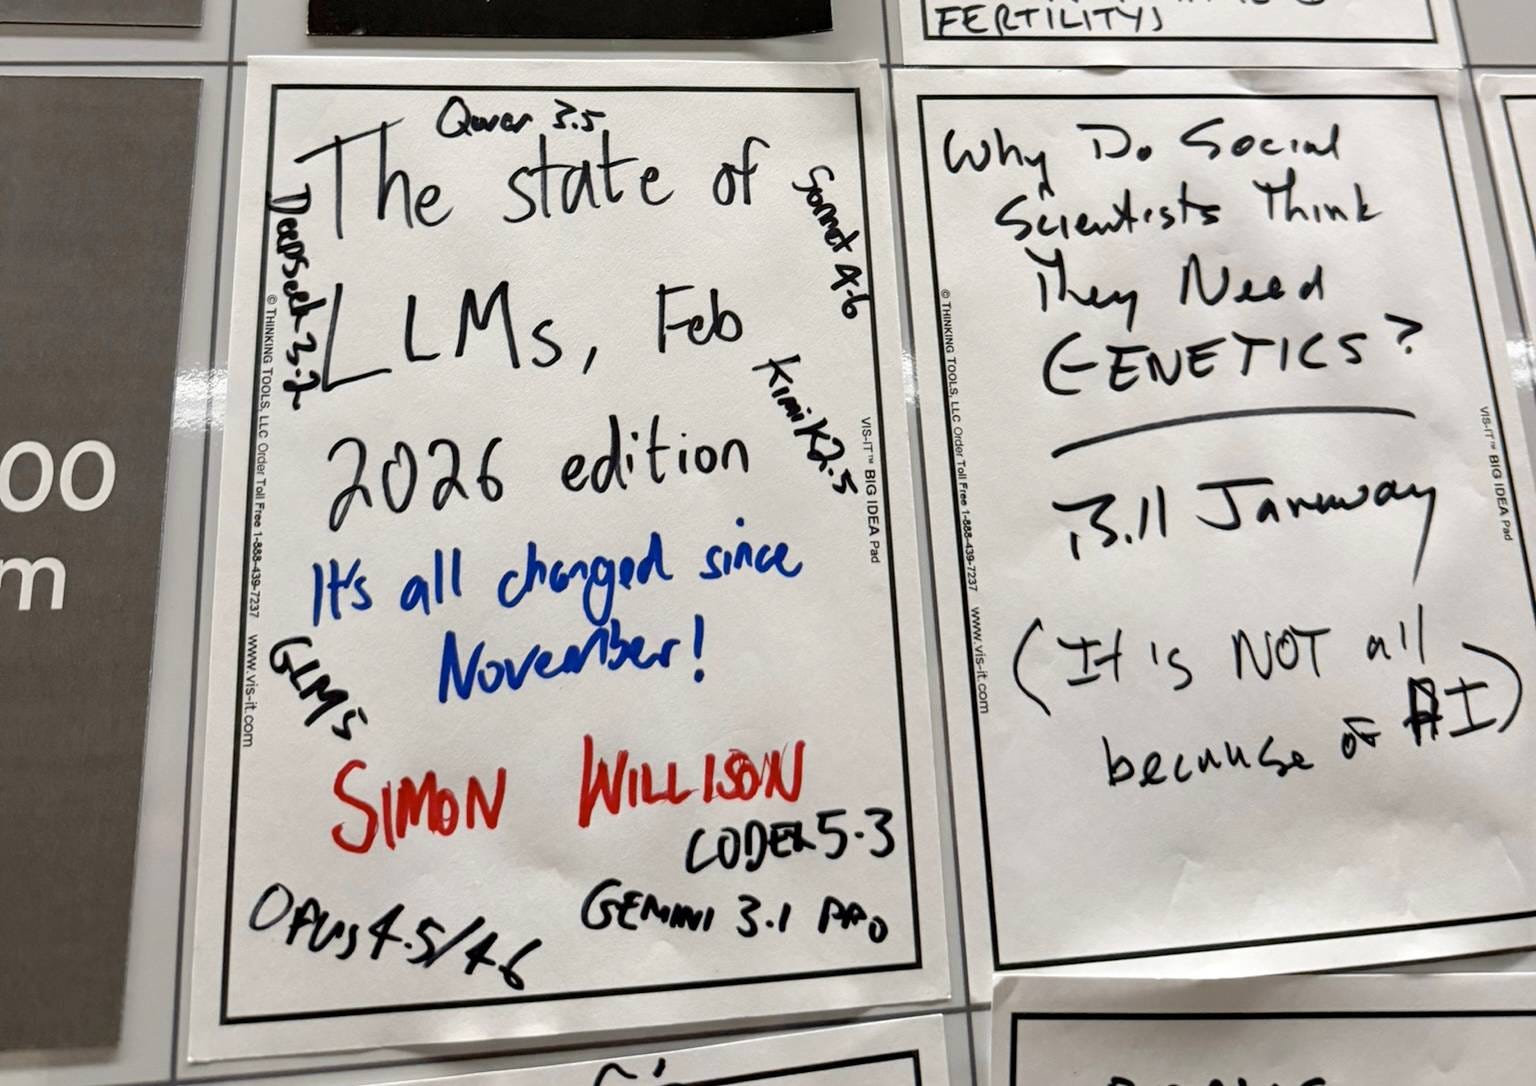 FERTILITY)
00
m
Qwen 3.5
The state of
LLMs, Feb
2026 edition
It's all changed since
November!
SIMON WILLISON
DeepSeek 3.2
Sonnet 4.6
Kimi K2.5
GLM5
CODEX 5.3
GEMINI 3.1 PRO
OPUS 4.5/4.6
© THINKING TOOLS, LLC Order Toll Free 1-888-439-7237 www.vis-it.com
VIS-IT™ BIG IDEA Pad
Why Do Social
Scientists Think
They Need
GENETICS?
B.11 January
(It's NOT all
because of AI)
© THINKING TOOLS, LLC Order Toll Free 1-888-439-7237 www.vis-it.com
VIS-IT™ BIG IDEA Pad